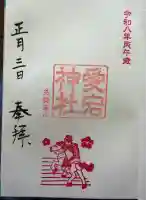 令和八年丙午歳
愛宕神社
奉拝
正月三日